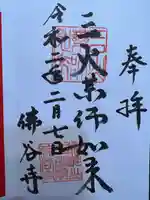 奉拝
三火薬師如来
令和二年二月七日
佛谷寺